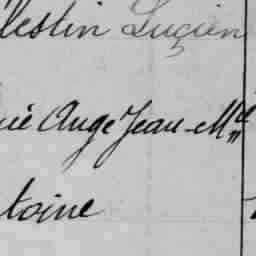 lestin Lucien
ié Ange Jean-M
toine